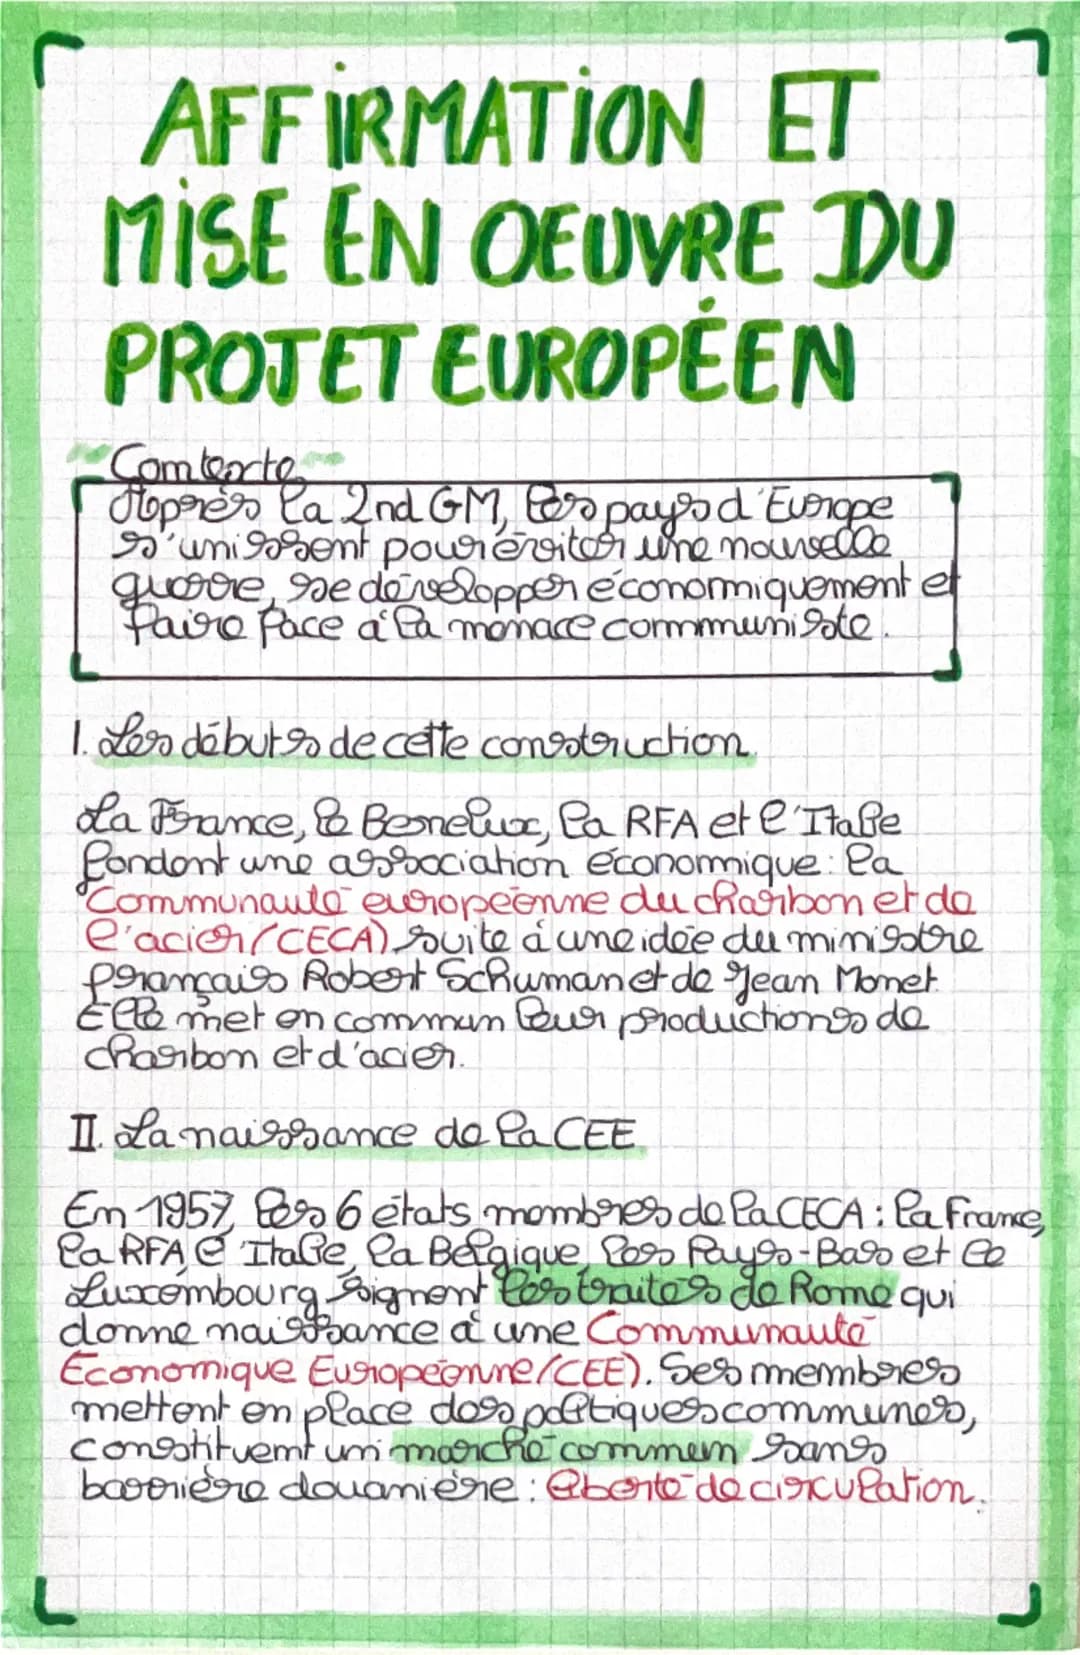 AFFIRMATION ET
MISE EN OEUVRE DU
PROJET EUROPÉEN
Contexte
Après la 2nd GM, les pays d'Europe
s'unissent pour éviter une nouvelle
guerre, se développer économiquement et
faire face à la menace communiste.
I. Les débuts de cette construction
La France, le Benelux, la RFA et l'Italie
fondent une association économique : la
Communauté européenne du charbon et de
l'acier (CECA) suite à une idée du ministre
français Robert Schuman et de Jean Monet.
Elle met en commun leur productions de
charbon et d'acier.
II. La naissance de la CEE
En 1957, les 6 états membres de la CECA : la France,
la RFA, l'Italie, la Belgique, les Pays-Bas et le
Luxembourg signent les traités de Rome qui
donne naissance à une Communauté
Économique Européenne (CEE). Ses membres
mettent en place des politiques communes,
constituent un marché commun sans
barrière douanière : liberté de circulation.